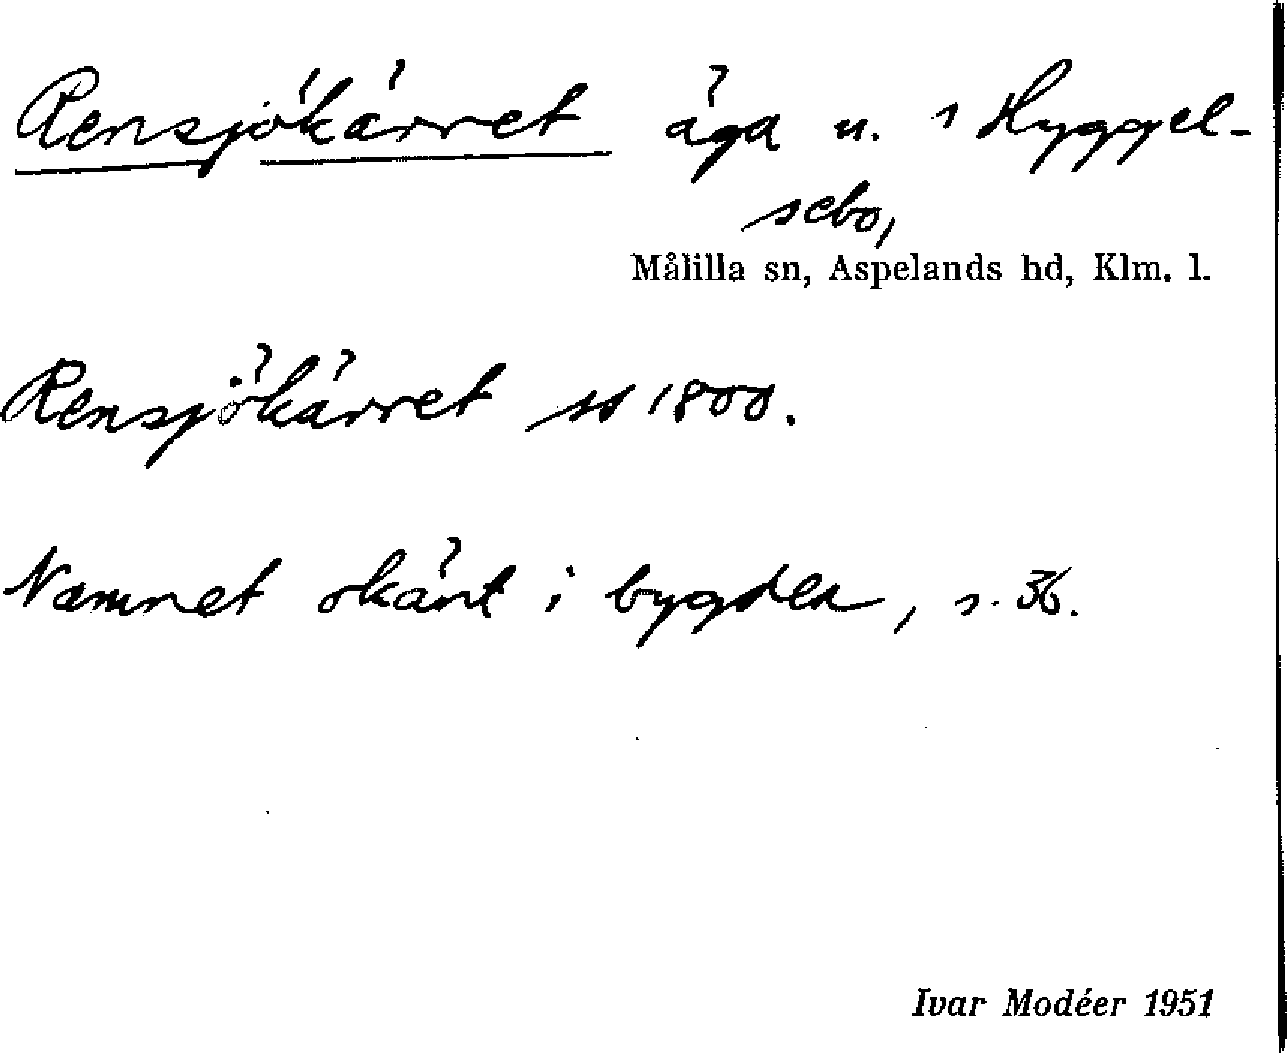 Rensjökärret äga u. 1 Hyggel-
sebo,
Målilla sn, Aspelands hd, Klm. l.
Rensjökärret so 1800.
Namnet okänt i bygden, s. 36.
Ivar Modéer 1951